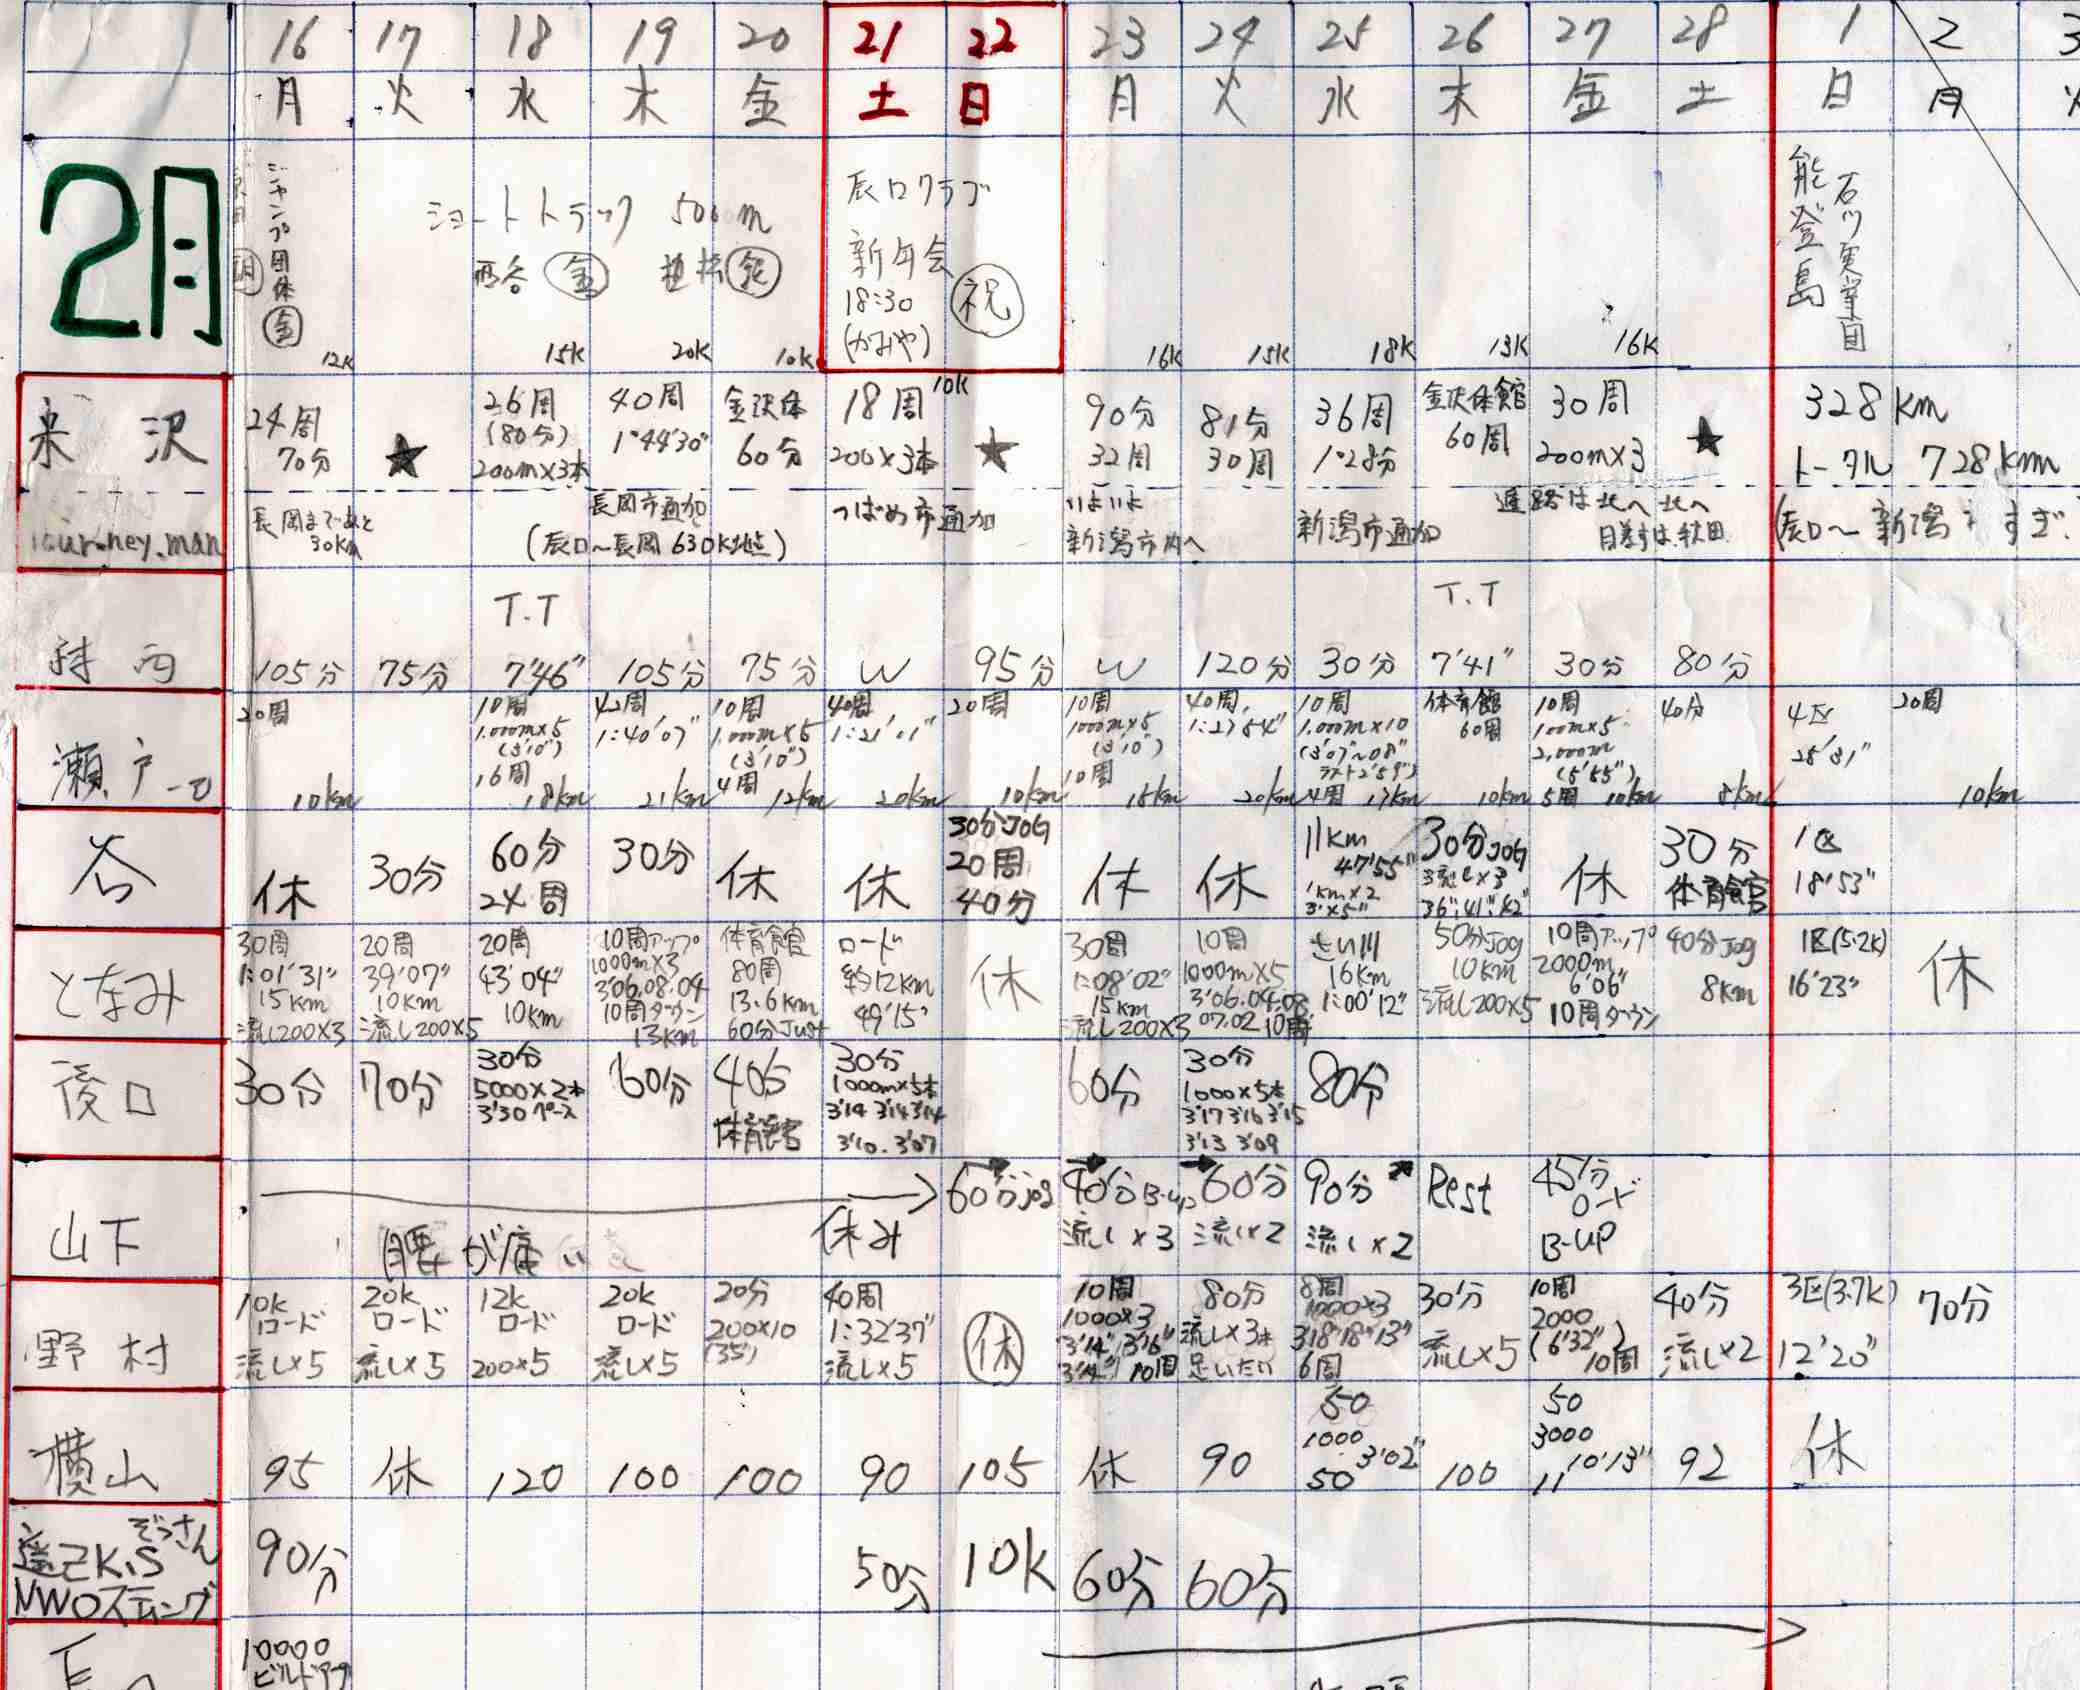 16 17 18 19 20 21 22 23 24 25 26 27 28 1 2 3
月 火 水 木 金 土 日 月 火 水 木 金 土 日 月 火
2月
ジャンプ団体 金
ショートトラック 500m
西谷 金 植松 銀
辰口クラブ
新年会
18:30
(かみや)
祝
石川実業団
能登島
12K 15K 20K 10K 10K 16K 15K 18K 13K 16K
米沢
journey.man
24周
70分
★
26周
(80分)
200m×3本
40周
1°44'30"
金沢体
60分
18周
200×3本
★
90分
32周
81分
30周
36周
1°28分
金沢体館
60周
30周
200m×3
★
328km
トータル 728km
長岡まであと
30km
長岡市通加
(辰口〜長岡 630K地点)
つばめ市通加
いよいよ
新潟市内へ
新潟市通加
進路は北へ北へ
目差すは秋田
(辰口〜新潟
105分 75分
T.T
7'46"
105分 75分 W 95分 W 120分 30分
T.T
7'41"
30分 80分
瀬戸
20周
10km
10周
1,000m×5
(3'10")
16周
18km
42周
1:40'07"
21km
10周
1,000m×5
(3'10")
4周 12km
40周
1:21'11"
20km
20周
10km
10周
1000m×5
(3'10")
10周
15km
40周
1:21'54"
20km
10周
1,000m×10
(3'07"~08"
ラスト2'59")
4周 17km
体育館
60周
10km
10周
1000m×5
2,000m
(5'55")
5周 10km
40分
8km
4区
25'31"
20周
10km
谷
休
30分
60分
24周
30分
休
休
30分JOG
20周
40分
休
休
11km
47'55"
1km×2
3'×5"
30分JOG
流し×3
36"、41"、42"
休
30分
体育館
1区
18'53"
となみ
30周
1:01'31"
15km
流し200×3
20周
39'07"
10km
流し200×5
20周
43'04"
10km
10周アップ
1000m×3
3'06.08.04
10周ダウン
13km
体育館
80周
13.6km
60分Just
ロード
約12km
49'15"
休
30周
1:08'02"
15km
流し200×3
10周
1000m×5
3'06.04.08
07.02 10周
さい川
16km
1:00'12"
50分Jog
10km
流し200×5
10周アップ
2000m
6'06"
10周ダウン
40分Jog
8km
1区(5.2K)
16'23"
休
後口
30分
70分
30分
5000×2本
3'30ペース
60分
40分
体育館
30分
1000m×5本
3'14 3'14 3'14
3'10. 3'07
60分
30分
1000×5本
3'17 3'16 3'15
3'13 3'09
80分
山下
腰が痛い
休み
60分jog
40分B-up
流し×3
60分
流し×2
90分
流し×2
Rest
45分
ロード
B-UP
野村
10K
ロード
流し×5
20K
ロード
流し×5
12K
ロード
200×5
20K
ロード
流し×5
20分
200×10
(35")
40周
1:32'37"
流し×5
休
10周
1000×3
3'14" 3'16"
3'14" 10周
80分
流し×3本
足いたい
8周
1000×3
3'18"18"13"
6周
30分
流し×5
10周
2000
(6'32")
10周
40分
流し×2
3区(3.7K)
12'20"
70分
横山
95
休
120
100
100
90
105
休
90
50
1000
3'02"
50
100
50
3000
10'13"
11
92
休
ぞっさん
K.S
NWOスティング
90分
50分
10K
60分
60分
10000
ビルドアップ